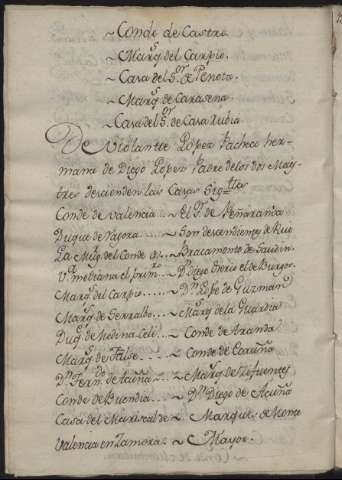 ~ Conde de Castro
~ Marq.s del Carpio.
~ Casa del S.r de Penota.
~ Marq.s de Carasena
~ Casa del S.r de Casa Rubia
De Violante Lopez Pacheco her-
mana de Diego Lopez Padre delos dos Maes-
tres descienden las Casas Sig.tes
Conde de Valencia ... ~ el S.r de Peñaranda
Duque de Naxera ... ~ Son descendientes de Ruio
La Mug.r del Conde ~ Bracamonte de
V.a mediana el prim.o ~ D.n Diego Osorio el de Burgos
Marq.s del Carpio ..... ~ D.n Lope de Guzmán
Marq.s de Serralbo ... ~ Marq.s de la Guardia
Duq.e de Medina Celi ... ~ Conde de Aranda
Marq.s de False ... ~ Conde de Coruña
D.n Fern.do de Acuña ... ~ Marq.s de Zifuentes
Conde de Buendia ... ~ D.n Diego de Acuña
Casa del Mariscal de ~ Marques de Monte
Valencia en Zamora ~ ~ Mayor.